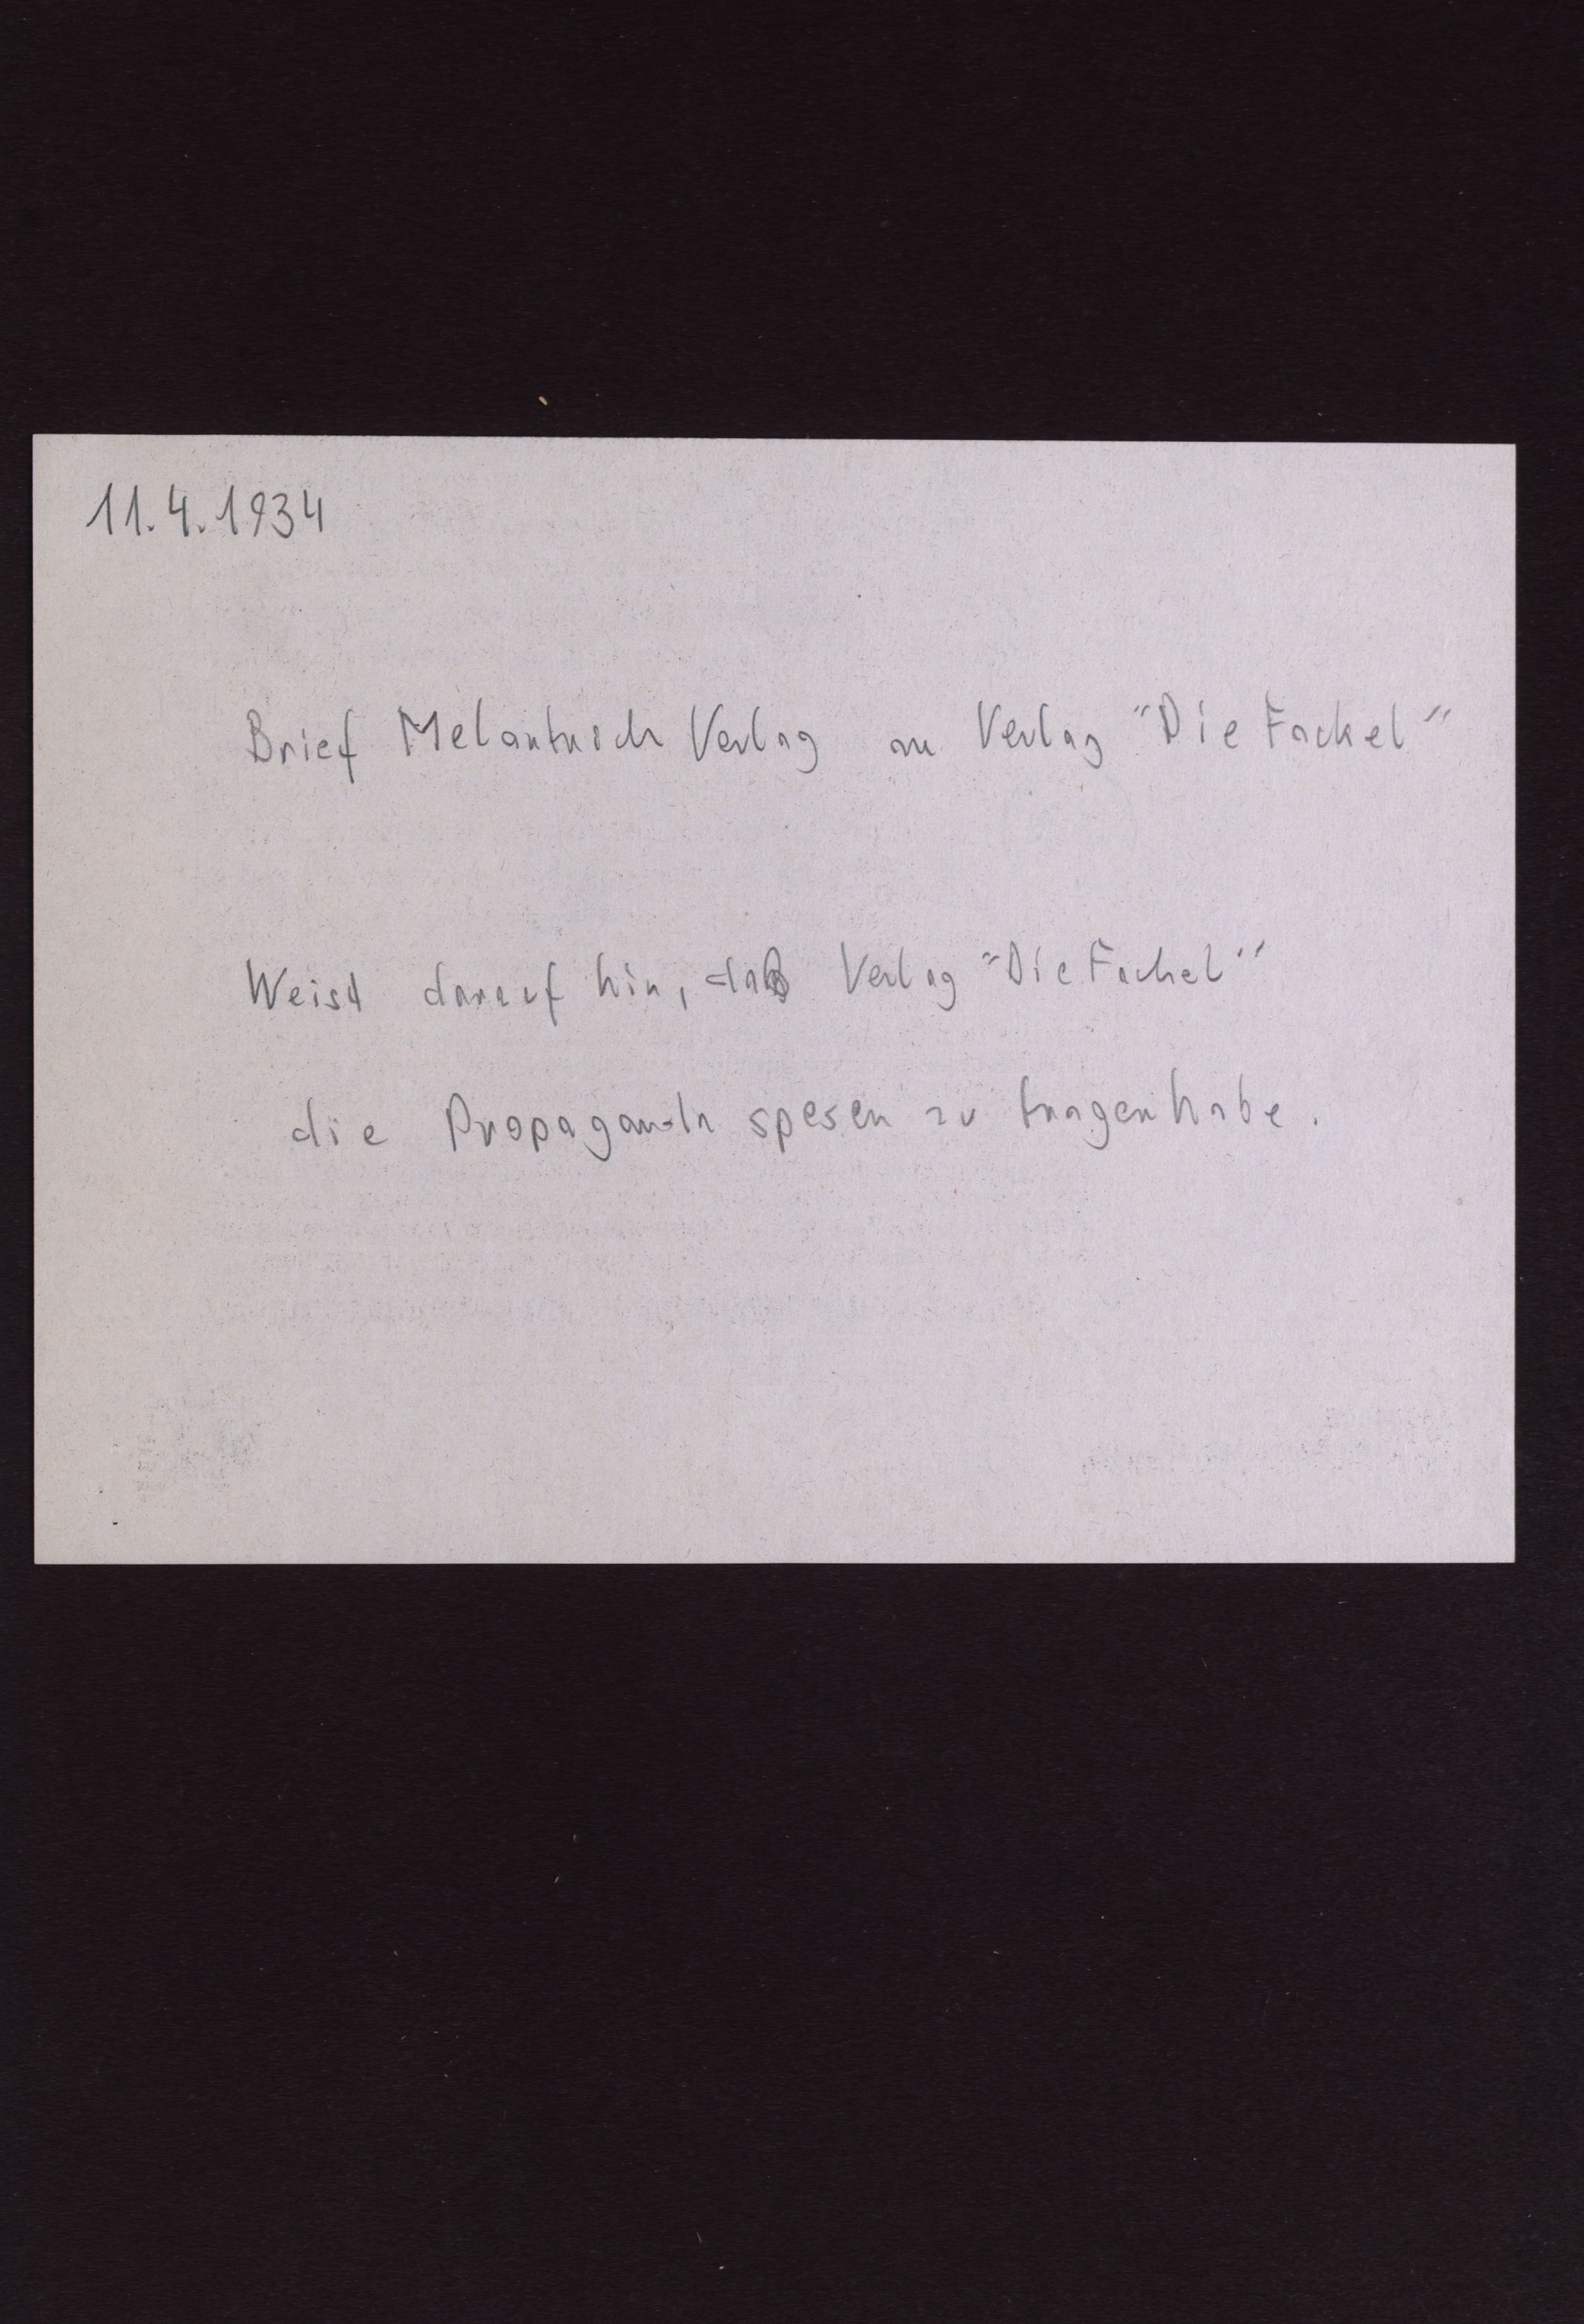 11.4.1934
Brief Melantrich Verlag an Verlag "Die Fackel"
Weist darauf hin, daß Verlag "Die Fackel"
die Propaganda spesen zu tragen habe.